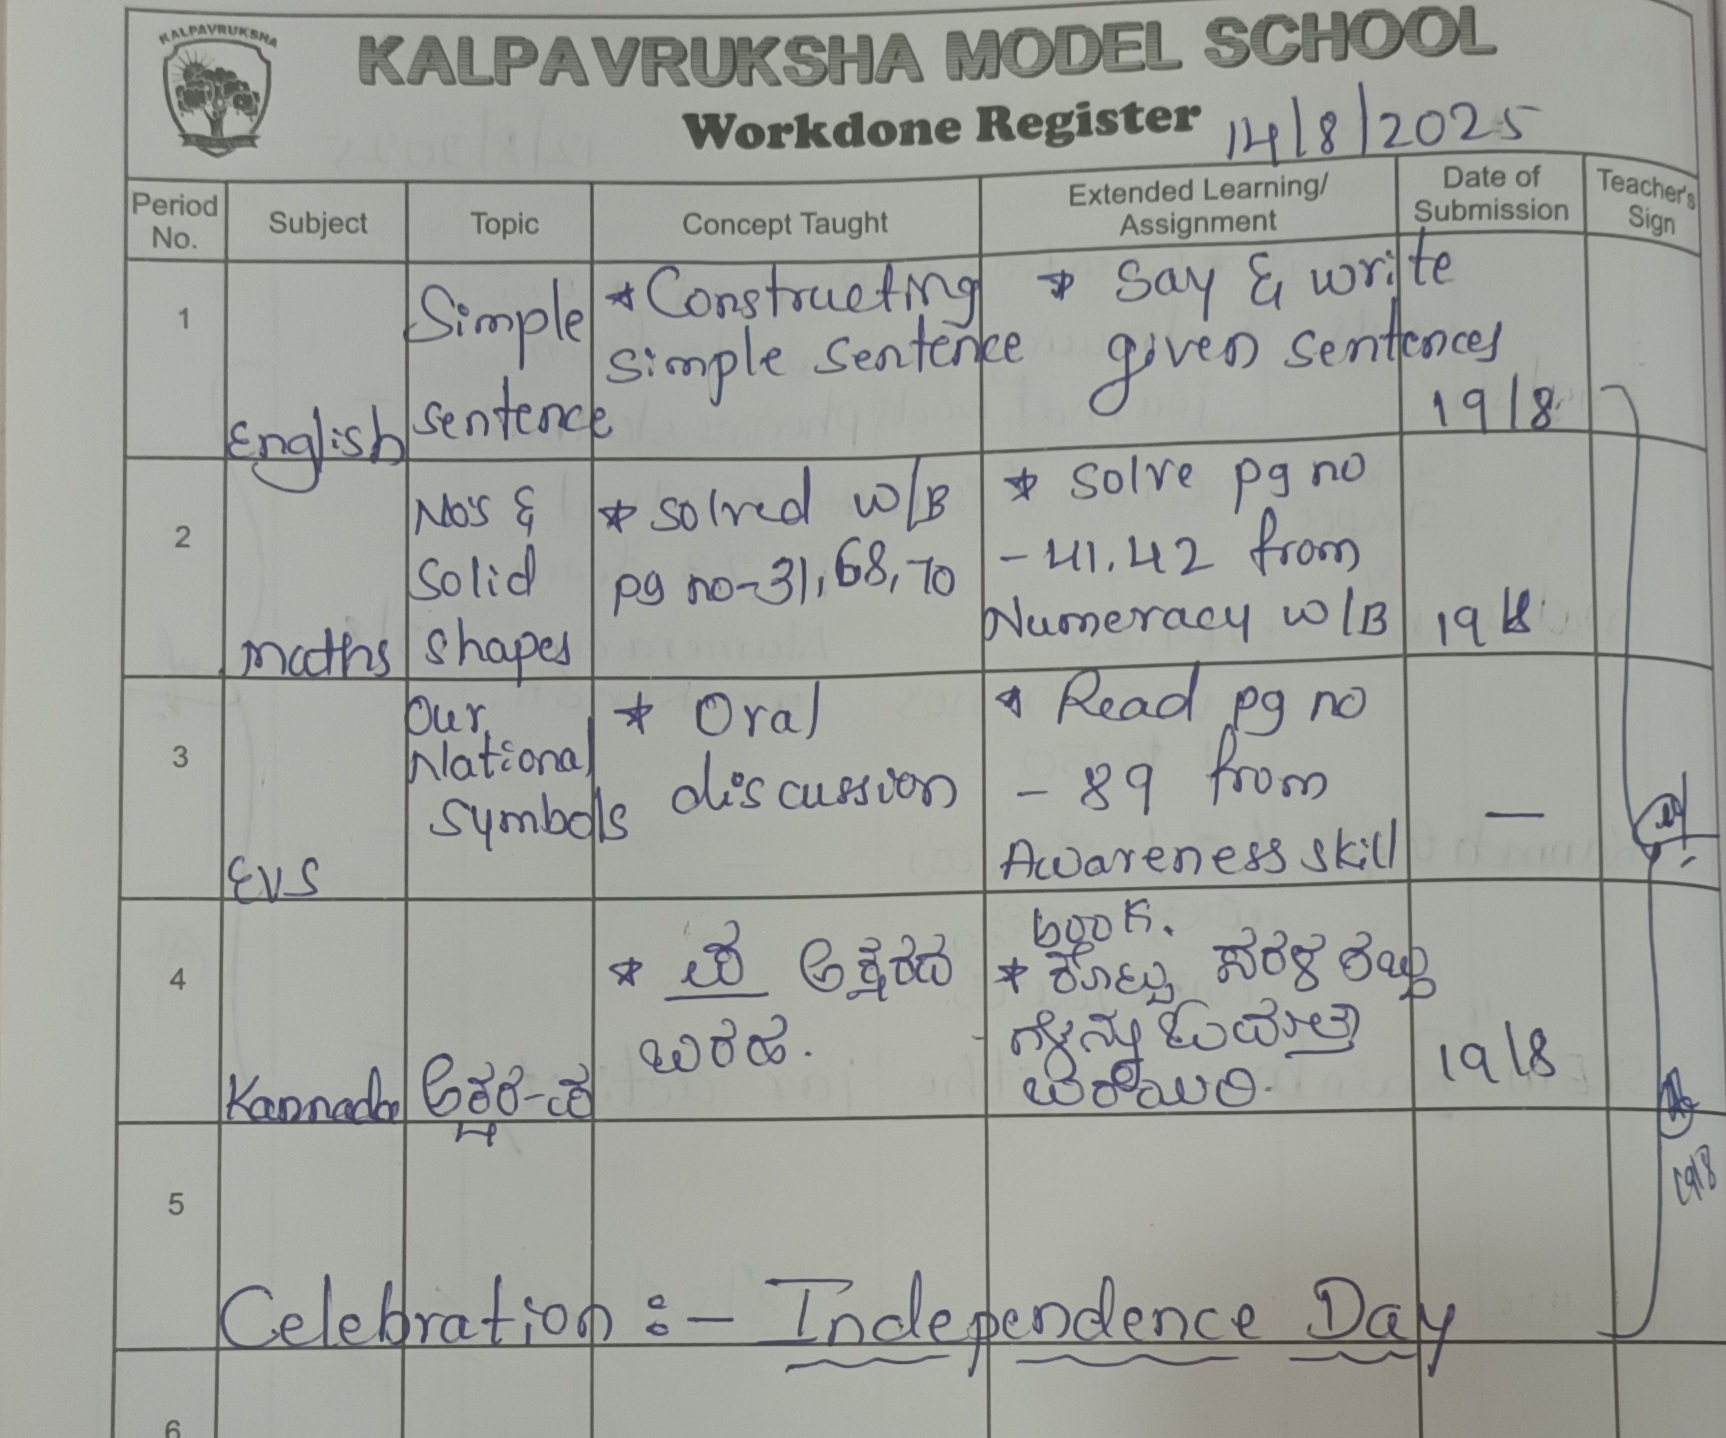 KALPAVRUKSHA
KALPAVRUKSHA MODEL SCHOOL
Workdone Register 14/8/2025
Period No.
Subject
Topic
Concept Taught
Extended Learning/ Assignment
Date of Submission
Teacher's Sign
1
English
Simple
sentence
* Constructing
simple sentence
* Say & write
given sentences
19/8
2
maths
No's &
Solid
shapes
* solved w/B
pg no-31,68,70
* solve pg no
- 41,42 from
Numeracy w/B
19/8
3
EVS
Our
National
symbols
* Oral
discussion
* Read pg no
- 89 from
Awareness skill
book.
—
4
Kannada
ಅಕ್ಷರ-ಪ
* ಪ ಅಕ್ಷರದ
ಬರಹ.
* ಕೊಟ್ಟ ಸರಳ
ಗಳನ್ನು ಓದುತ್ತಾ
ಬರೆಯಿರಿ.
19/8
19/8
5
Celebration :- Independence Day
6